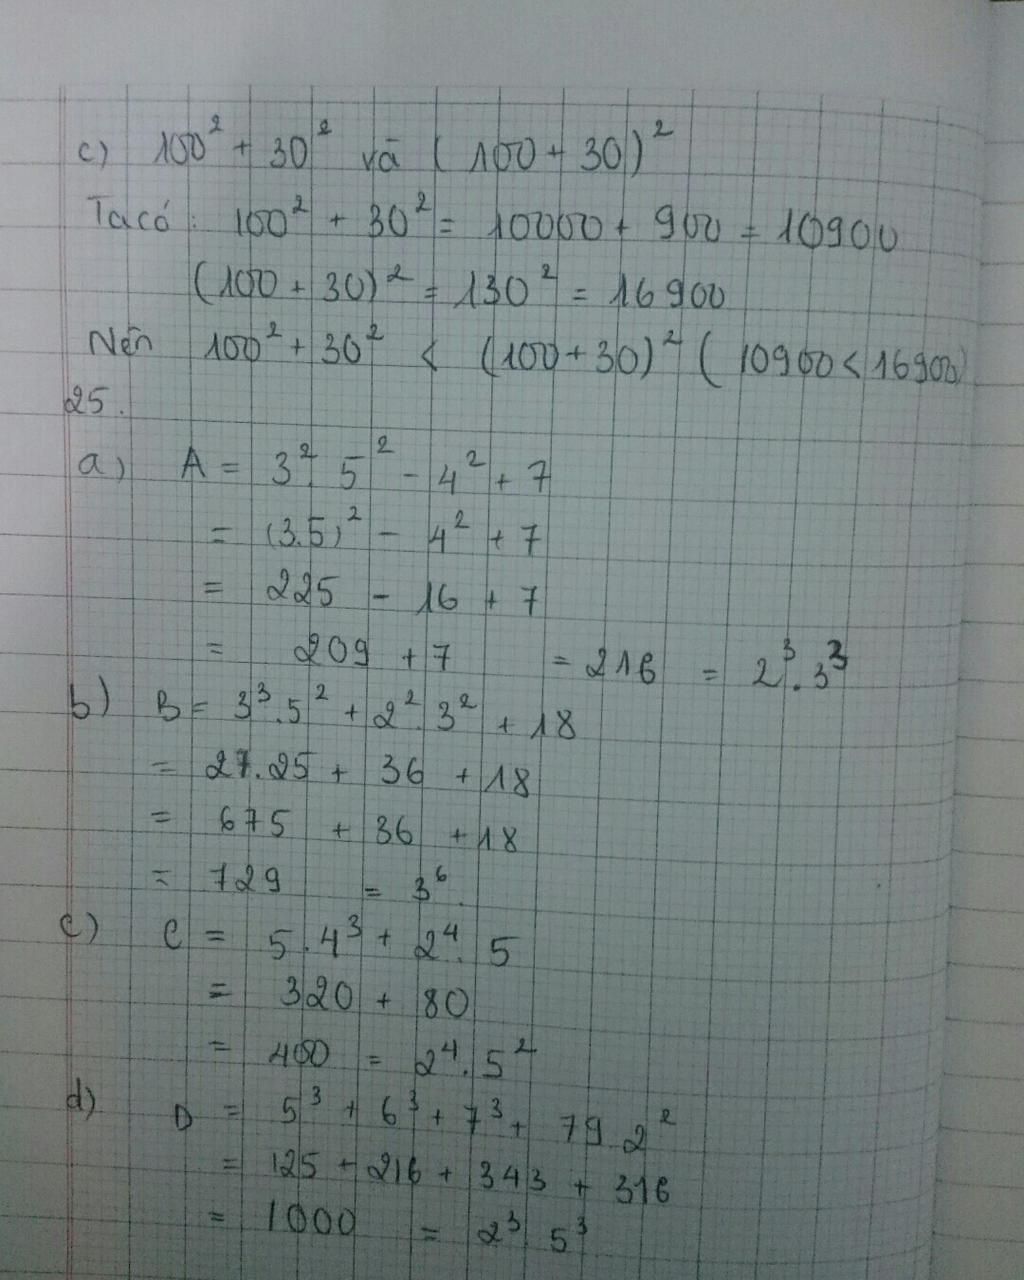 c) 100² + 30² và (100 + 30)²
Ta có : 100² + 30² = 10000 + 900 = 10900
(100 + 30)² = 130² = 16900
Nên 100² + 30² < (100 + 30)² (10900 < 16900)
25.
a) A = 3². 5² - 4² + 7
= (3.5)² - 4² + 7
= 225 - 16 + 7
= 209 + 7 = 216 = 2³. 3³
b) B = 3³.5² + 2². 3² + 18
= 27.25 + 36 + 18
= 675 + 36 + 18
= 729 = 3⁶.
c) C = 5 . 4³ + 2⁴. 5
= 320 + 80
= 400 = 2⁴. 5²
d) D = 5³ + 6³ + 7³ + 79 2²
= 125 + 216 + 343 + 316
= 1000 = 2³ 5³